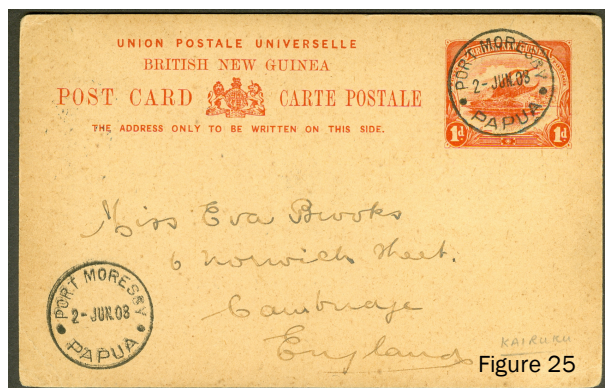 UNION POSTALE UNIVERSELLE
BRITISH NEW GUINEA
POST CARD CARTE POSTALE
THE ADDRESS ONLY TO BE WRITTEN ON THIS SIDE.
BRITISH NEW GUINEA
1d 1d
PORT MORESBY
2-JUN.08
PAPUA
Miss Eva Brooks
6 Norwich Street.
Cambridge
England
PORT MORESBY
2-JUN.08
PAPUA
KAIRUKU
Figure 25